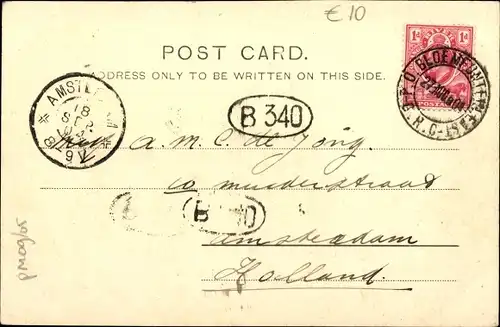 € 10
POST CARD.
ADDRESS ONLY TO BE WRITTEN ON THIS SIDE.
1d 1d
POSTAGE
G.P.O BLOEMFONTEIN
O.R.C.
AMSTERDAM
18
SEP
B 340
a. m. C. de Jong.
10 muiderstraat
B 340
Amsterdam
Holland.